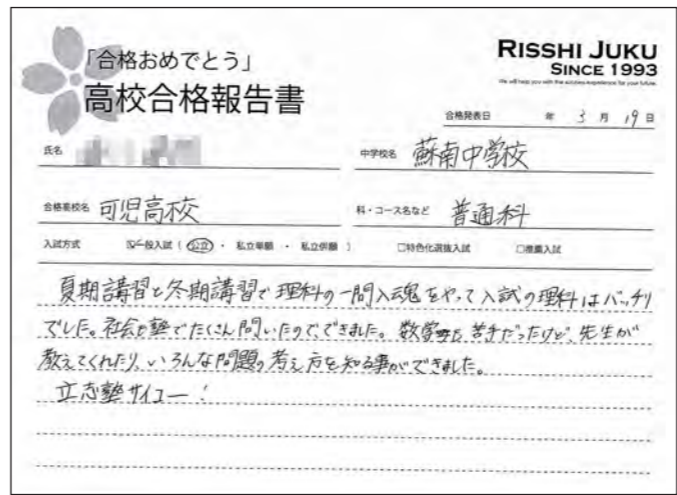 「合格おめでとう」
高校合格報告書
RISSHI JUKU
SINCE 1993
We will help you with the success experience for your future.
合格発表日 年 3 月 19 日
氏名
中学校名 蘇南中学校
合格高校名 可児高校
科・コース名など 普通科
入試方式 ☑一般入試 ( 公立 ・ 私立単願 ・ 私立併願 ) □特色化選抜入試 □推薦入試
夏期講習と冬期講習で理科の一問入魂をやって入試の理科はバッチリ
でした。社会も塾でたくさん問いたので、できました。数学も苦手だったけど、先生が
教えてくれたり、いろんな問題の考え方を知る事ができました。
立志塾サイコー!